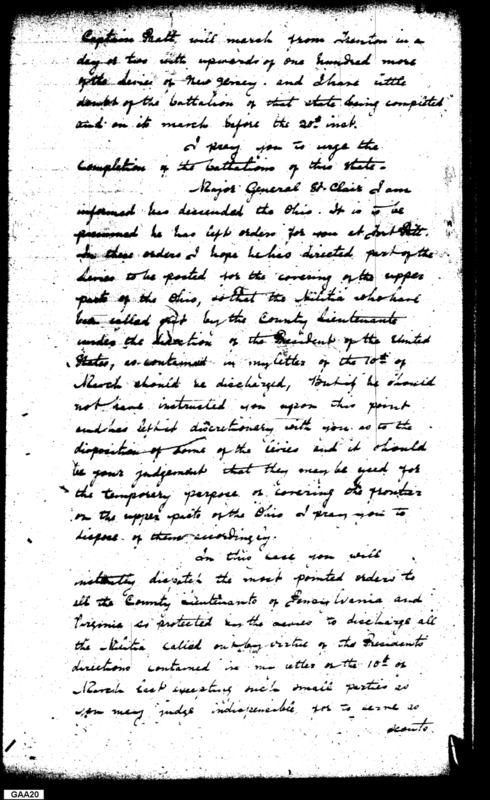 Captain Pratt will march from Trenton in a
day or two with upwards of one hundred more
of the Levies of New Jersey. and I have little
doubt of the battalion of that state being completed
and on its march before the 20th inst.
I pray you to urge the
completion of the battalions of this State.
Major General St. Clair I am
informed has descended the Ohio. It is to be
presumed he has left orders for you at Fort Pitt.
In these orders I hope he has directed part of the
Levies to be posted for the covering of the upper
parts of the Ohio, so that the Militia who have
been called out by the County Lieutenants
under the direction of the President of the United
States, as contained in my letter of the 10th of
March should be discharged, But if he should
not have instructed you upon this point
and has left it discretionary with you as to the
disposition of some of the Levies and it should
be your judgement that they may be used for
the temporary purpose of covering the frontier
on the upper parts of the Ohio I pray you to
dispose of them accordingly.
In this case you will
instantly dispatch the most pointed orders to
all the County Lieutenants of Pensylvania and
Virginia as protected by the Levies to discharge all
the Militia called out by virtue of the Presidents
directions contained in my letter of the 10th of
March last excepting such small parties as
you may judge indispensible for to serve as
scouts
GAA20